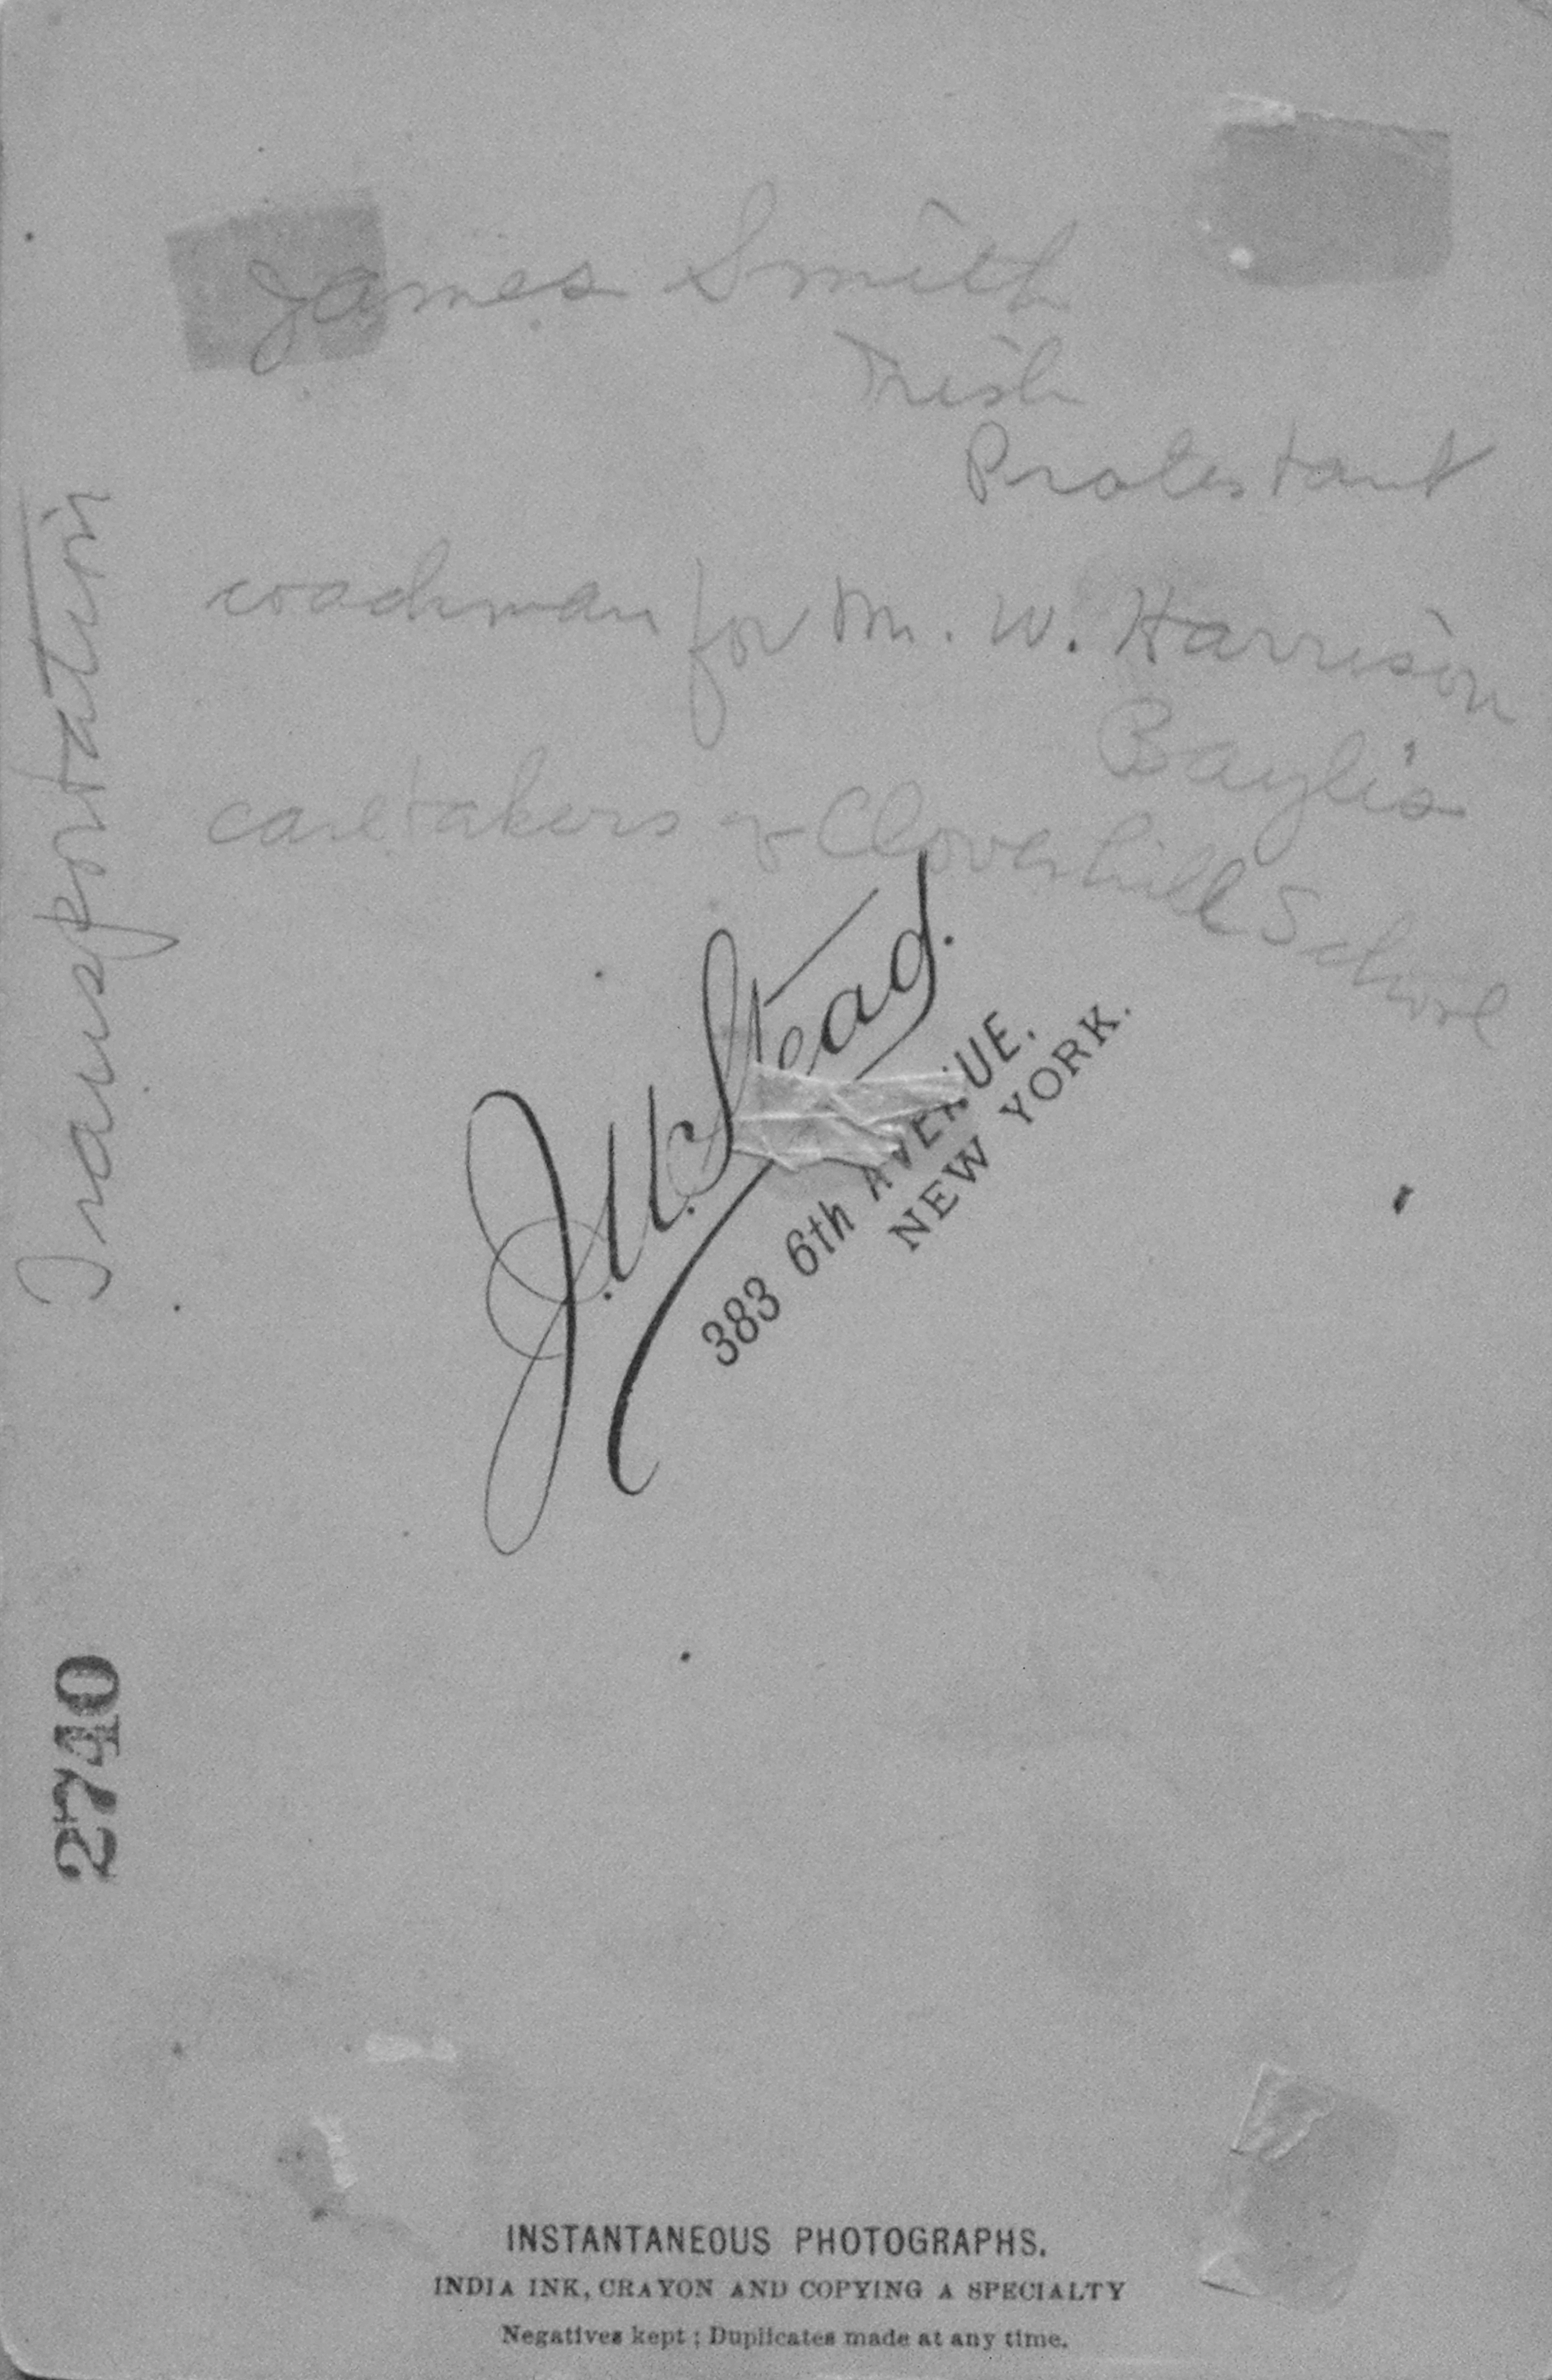 James Smith
Irish
Protestant
coachman for Mr. W. Harrison
Baylis
caretakers Cloverhill School
Transportation
J. U. Stead.
383 6th AVENUE.
NEW YORK.
2740
INSTANTANEOUS PHOTOGRAPHS.
INDIA INK, CRAYON AND COPYING A SPECIALTY
Negatives kept; Duplicates made at any time.